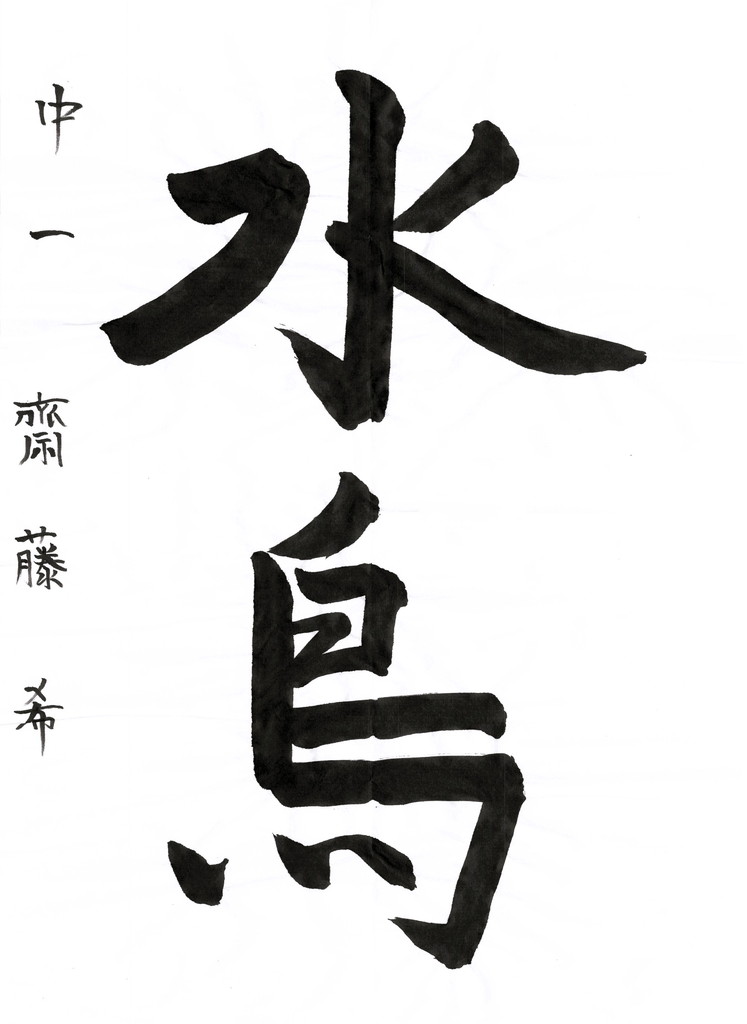 水鳥
中一 齋藤 希